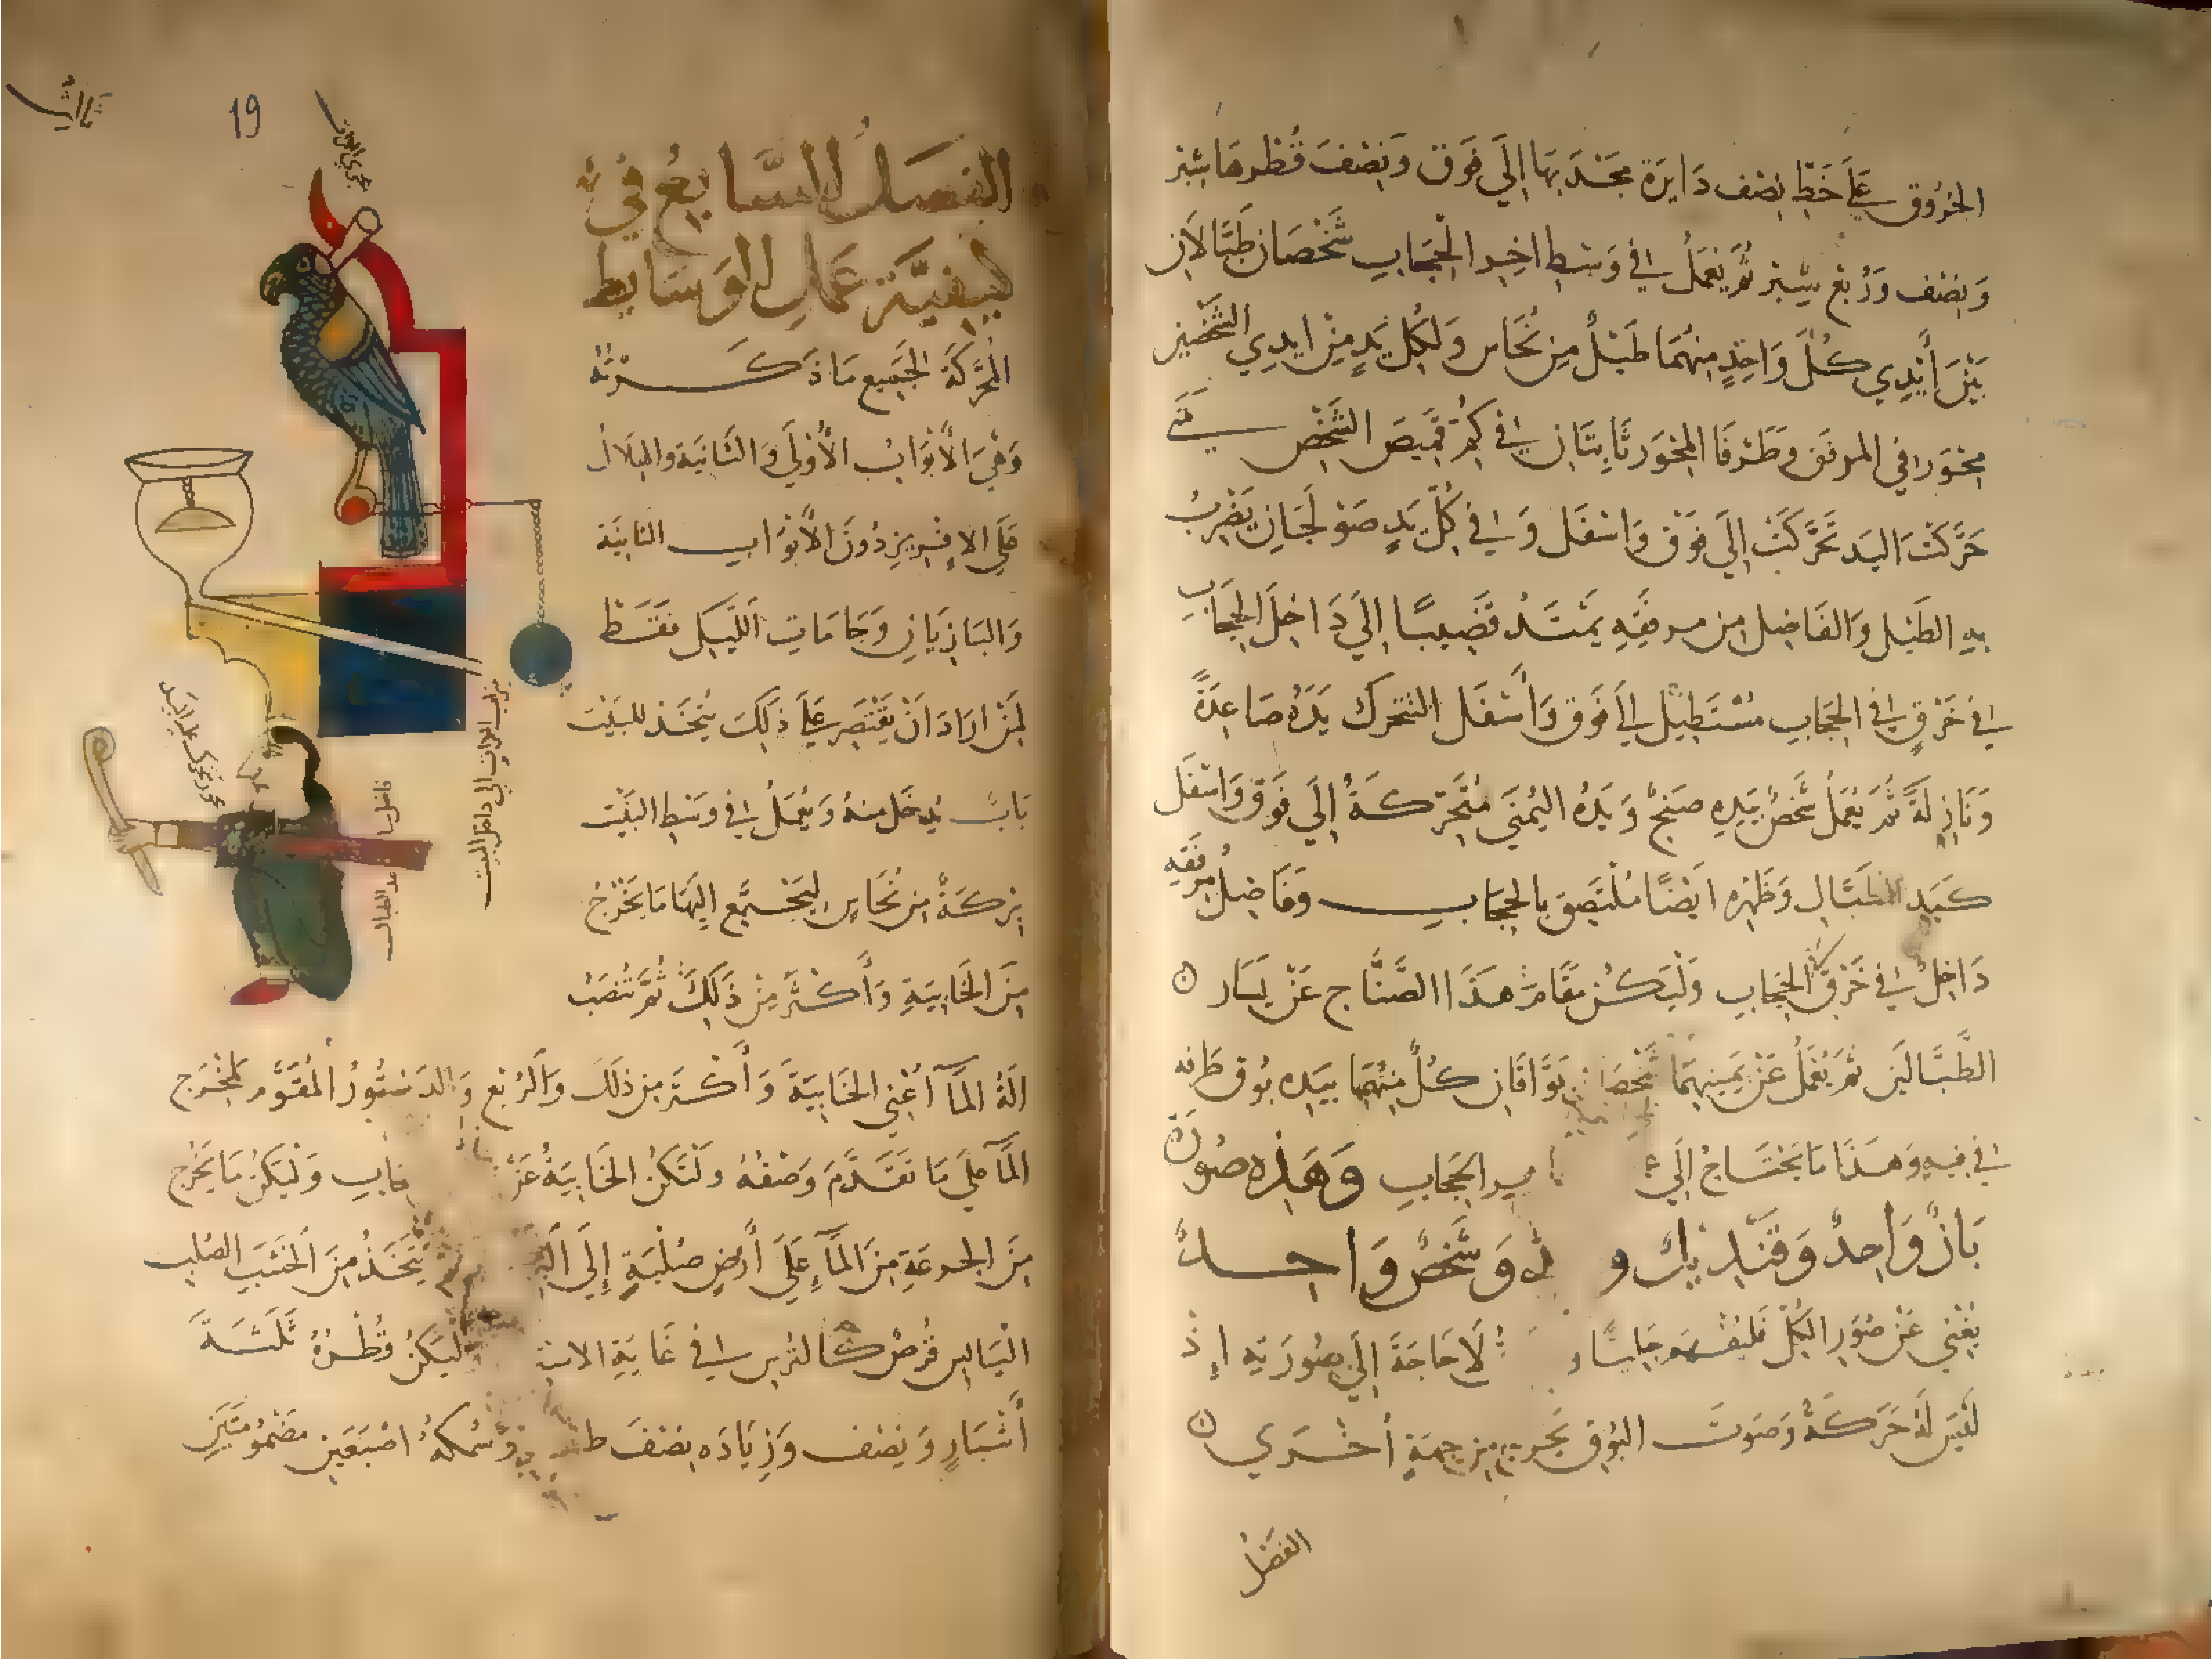 الخروق على خط نصف دايرة محدبها إلى فوق ونصف قطرها شبر
ونصف وربع شبر ثم يعمل في وسط اخر الحجاب شخصان طبالان
بين أيدي كل واحد منهما طبل من نحاس ولكل يد من ايدي الشخصين
محور في المرفق وطرفا المحور ثابتان في كم قميص الشخص متى
حركت اليد تحركت إلى فوق واسفل وفي كل يد صولجان يضرب
به الطبل والفاضل من مرفقه يمتد قضيبًا إلى داخل الحجاب
في خرق في الحجاب مستطيل إلى فوق وأسفل لتتحرك يده صاعدة
ونازلة ثم يعمل شخص بيده صنج ويده اليمنى متحركة إلى فوق واسفل
كيد الطبال وظهره ايضًا ملتصق بالحجاب وفاضل مرفقه
داخل في خرق الحجاب وليكن مقام هذا الصناج عن يسار
الطبالين ثم يعمل عن يمينهما شخصان بواقان كل منهما بيده بوق طرفه
في فيه وهذا ما يحتاج إلى الحجاب وهذه صورة
باز واحد وقنديل و وشخص واحد
يغني عن صور الكل لا حاجة إلى صورته إذ
ليس له حركة وصوت البوق يخرج من جهة أخرى
الفصل
19
الفصل السابع في
كيفية عمل الوسايط
المحركة لجميع ما ذكرته
وهي الأبواب الأولى والثانية والهلال
على الافريز دون الأبواب الثانية
والبازيان وجامات الليل فقط
لمن اراد أن يقتصر على ذلك يتخذ للبيت
باب يدخل منه ويعمل في وسط البيت
بركة من نحاس ليجتمع إليها ما يخرج
من الخابية وأكثر من ذلك ثم تنصب
الة الماء أعني الخابية وأكثر من ذلك والربع والدستور المقوم لمخرج
الماء على ما تقدم وصفه ولتكن الخابية عن وليكن ما يخرج
من الجرعة من الماء على أرض صلبة إلى ثم يتخذ من الخشب الصلب
اليابس قرص كالترس في غاية وليكن قطره ثلثة
أشبار ونصف وزياده نصف وسمكه اصبعين مضمومتين